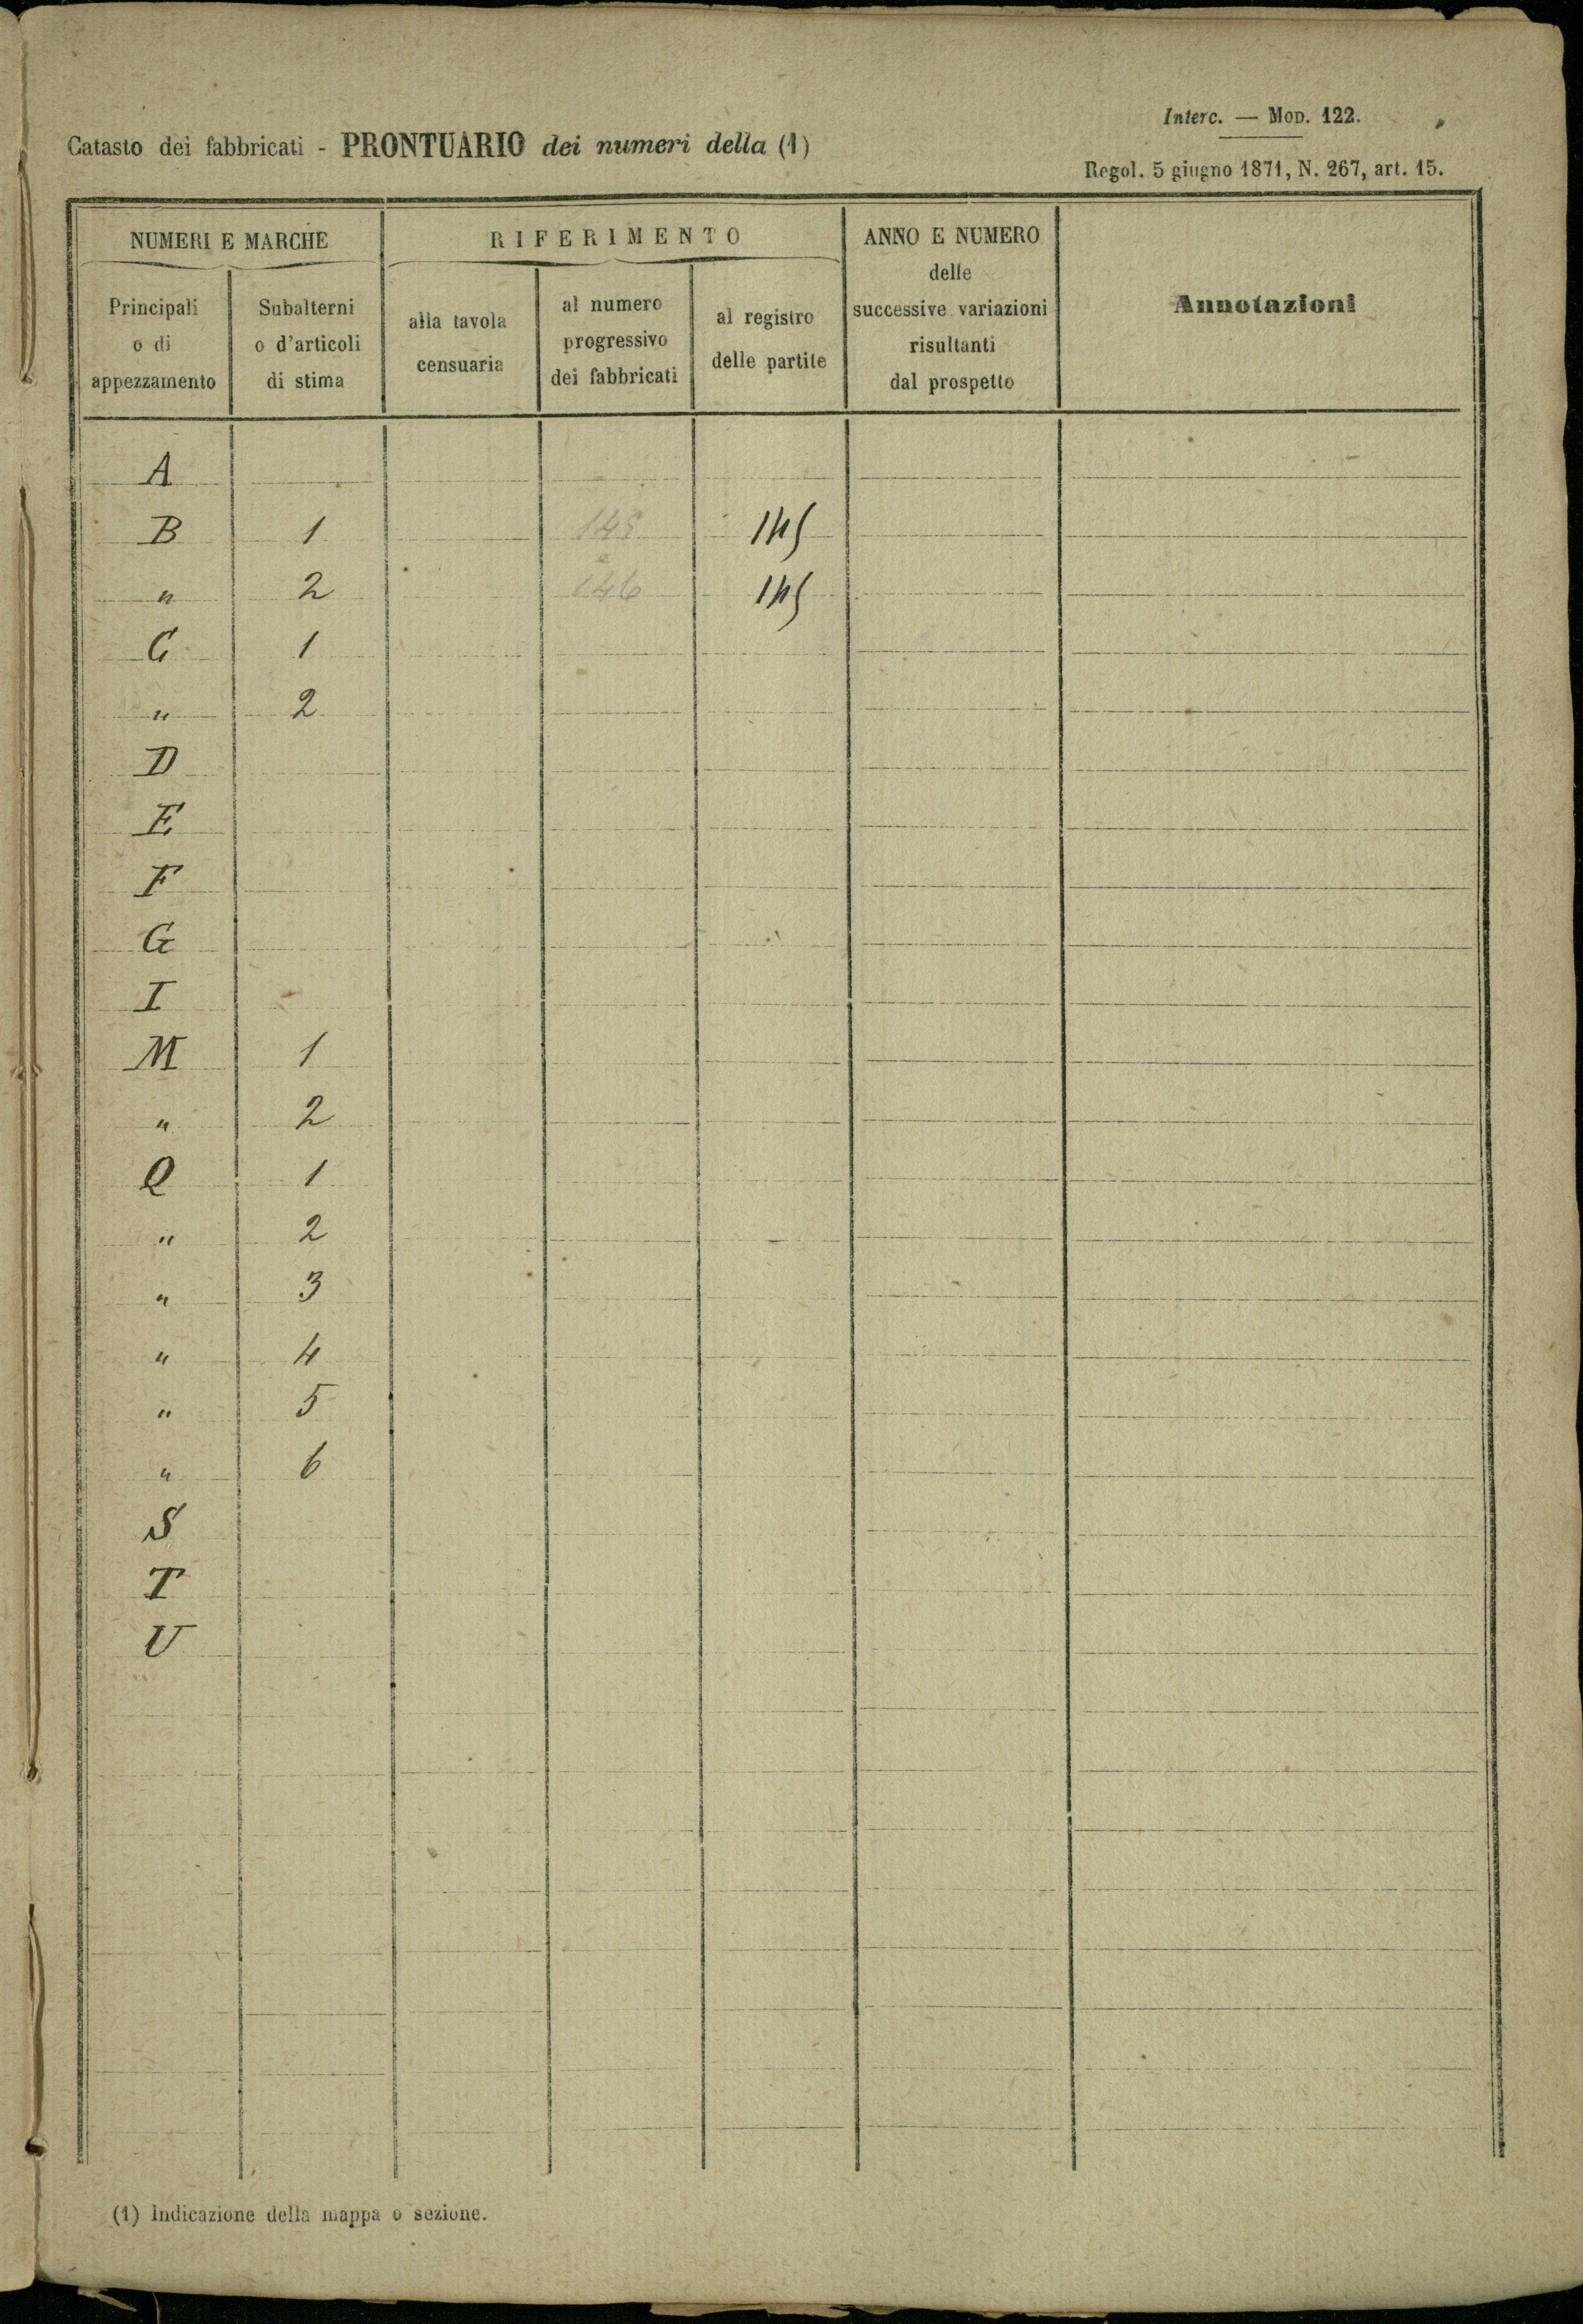 Interc. — Mod. 122.
Catasto dei fabbricati - PRONTUARIO dei numeri della (1)
Regol. 5 giugno 1871, N. 267, art. 15.
NUMERI E MARCHE
RIFERIMENTO
ANNO E NUMERO
delle
successive variazioni
risultanti
dal prospetto
Annotazioni
Principali
o di
appezzamento
Subalterni
o d'articoli
di stima
alla tavola
censuaria
al numero
progressivo
dei fabbricati
al registro
delle partite
A
B 1 145 145
" 2 146 145
C 1
" 2
D
E
F
G
I
M 1
" 2
Q 1
" 2
" 3
" 4
" 5
" 6
S
T
U
(1) Indicazione della mappa o sezione.